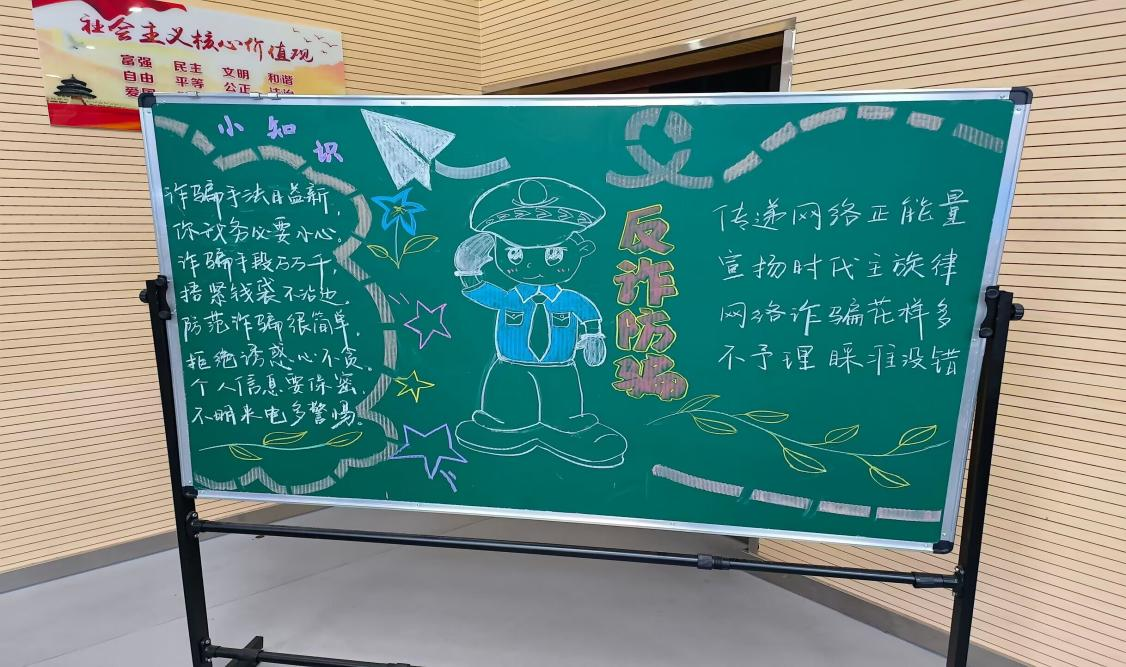 社会主义核心价值观
富强 民主 文明 和谐
自由 平等 公正
小知识
诈骗手法日益新,
你我务必要小心。
诈骗手段万万千,
捂紧钱袋不沾边,
防范诈骗很简单,
拒绝诱惑心不贪。
个人信息要保密,
不明来电多警惕。
反诈防骗
传递网络正能量
宣扬时代主旋律
网络诈骗花样多
不予理睬准没错